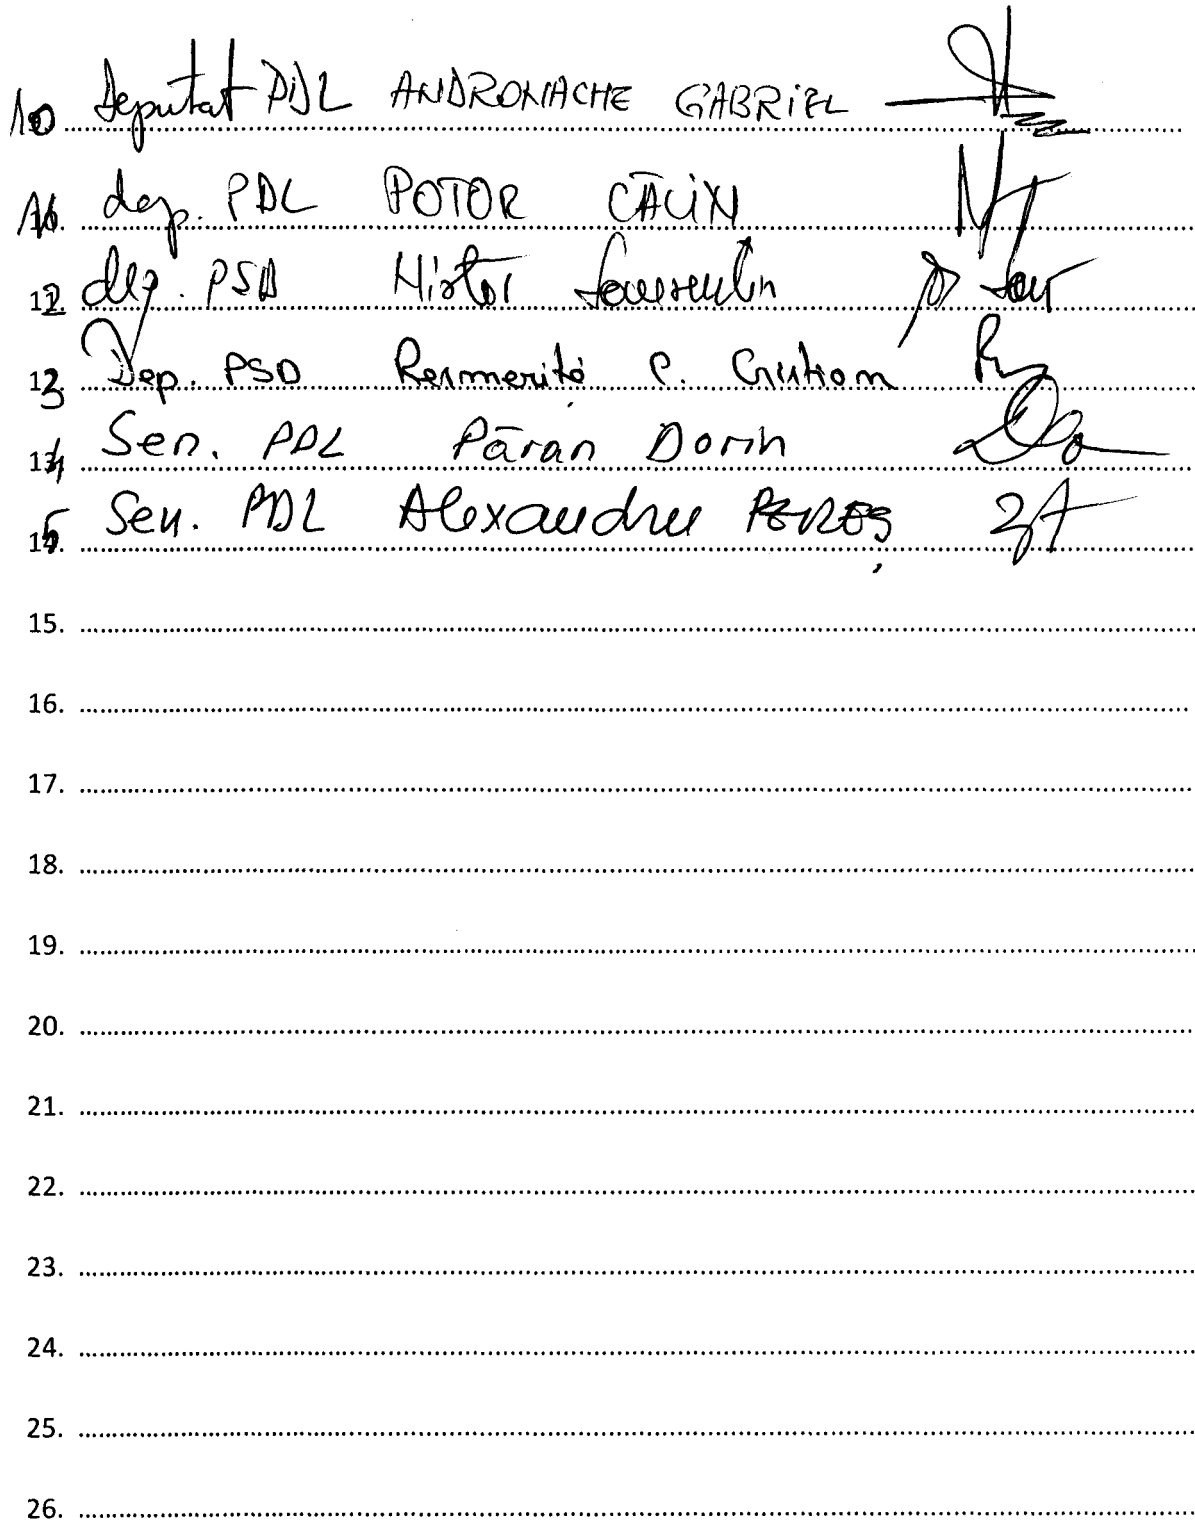 10 Deputat PDL ANDRONACHE GABRIEL
11. dep. PDL POTOR CĂLIN
12. dep. PSD Nistor Laurențiu
13. Dep. PSD Resmeriță C. Cristian
14. Sen. PDL Păran Dorin
15. Sen. PDL Alexandru PEREȘ
15.
16.
17.
18.
19.
20.
21.
22.
23.
24.
25.
26.